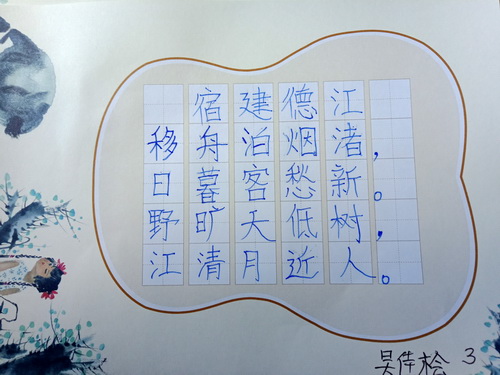 宿建德江
移舟泊烟渚，
日暮客愁新。
野旷天低树，
江清月近人。
3